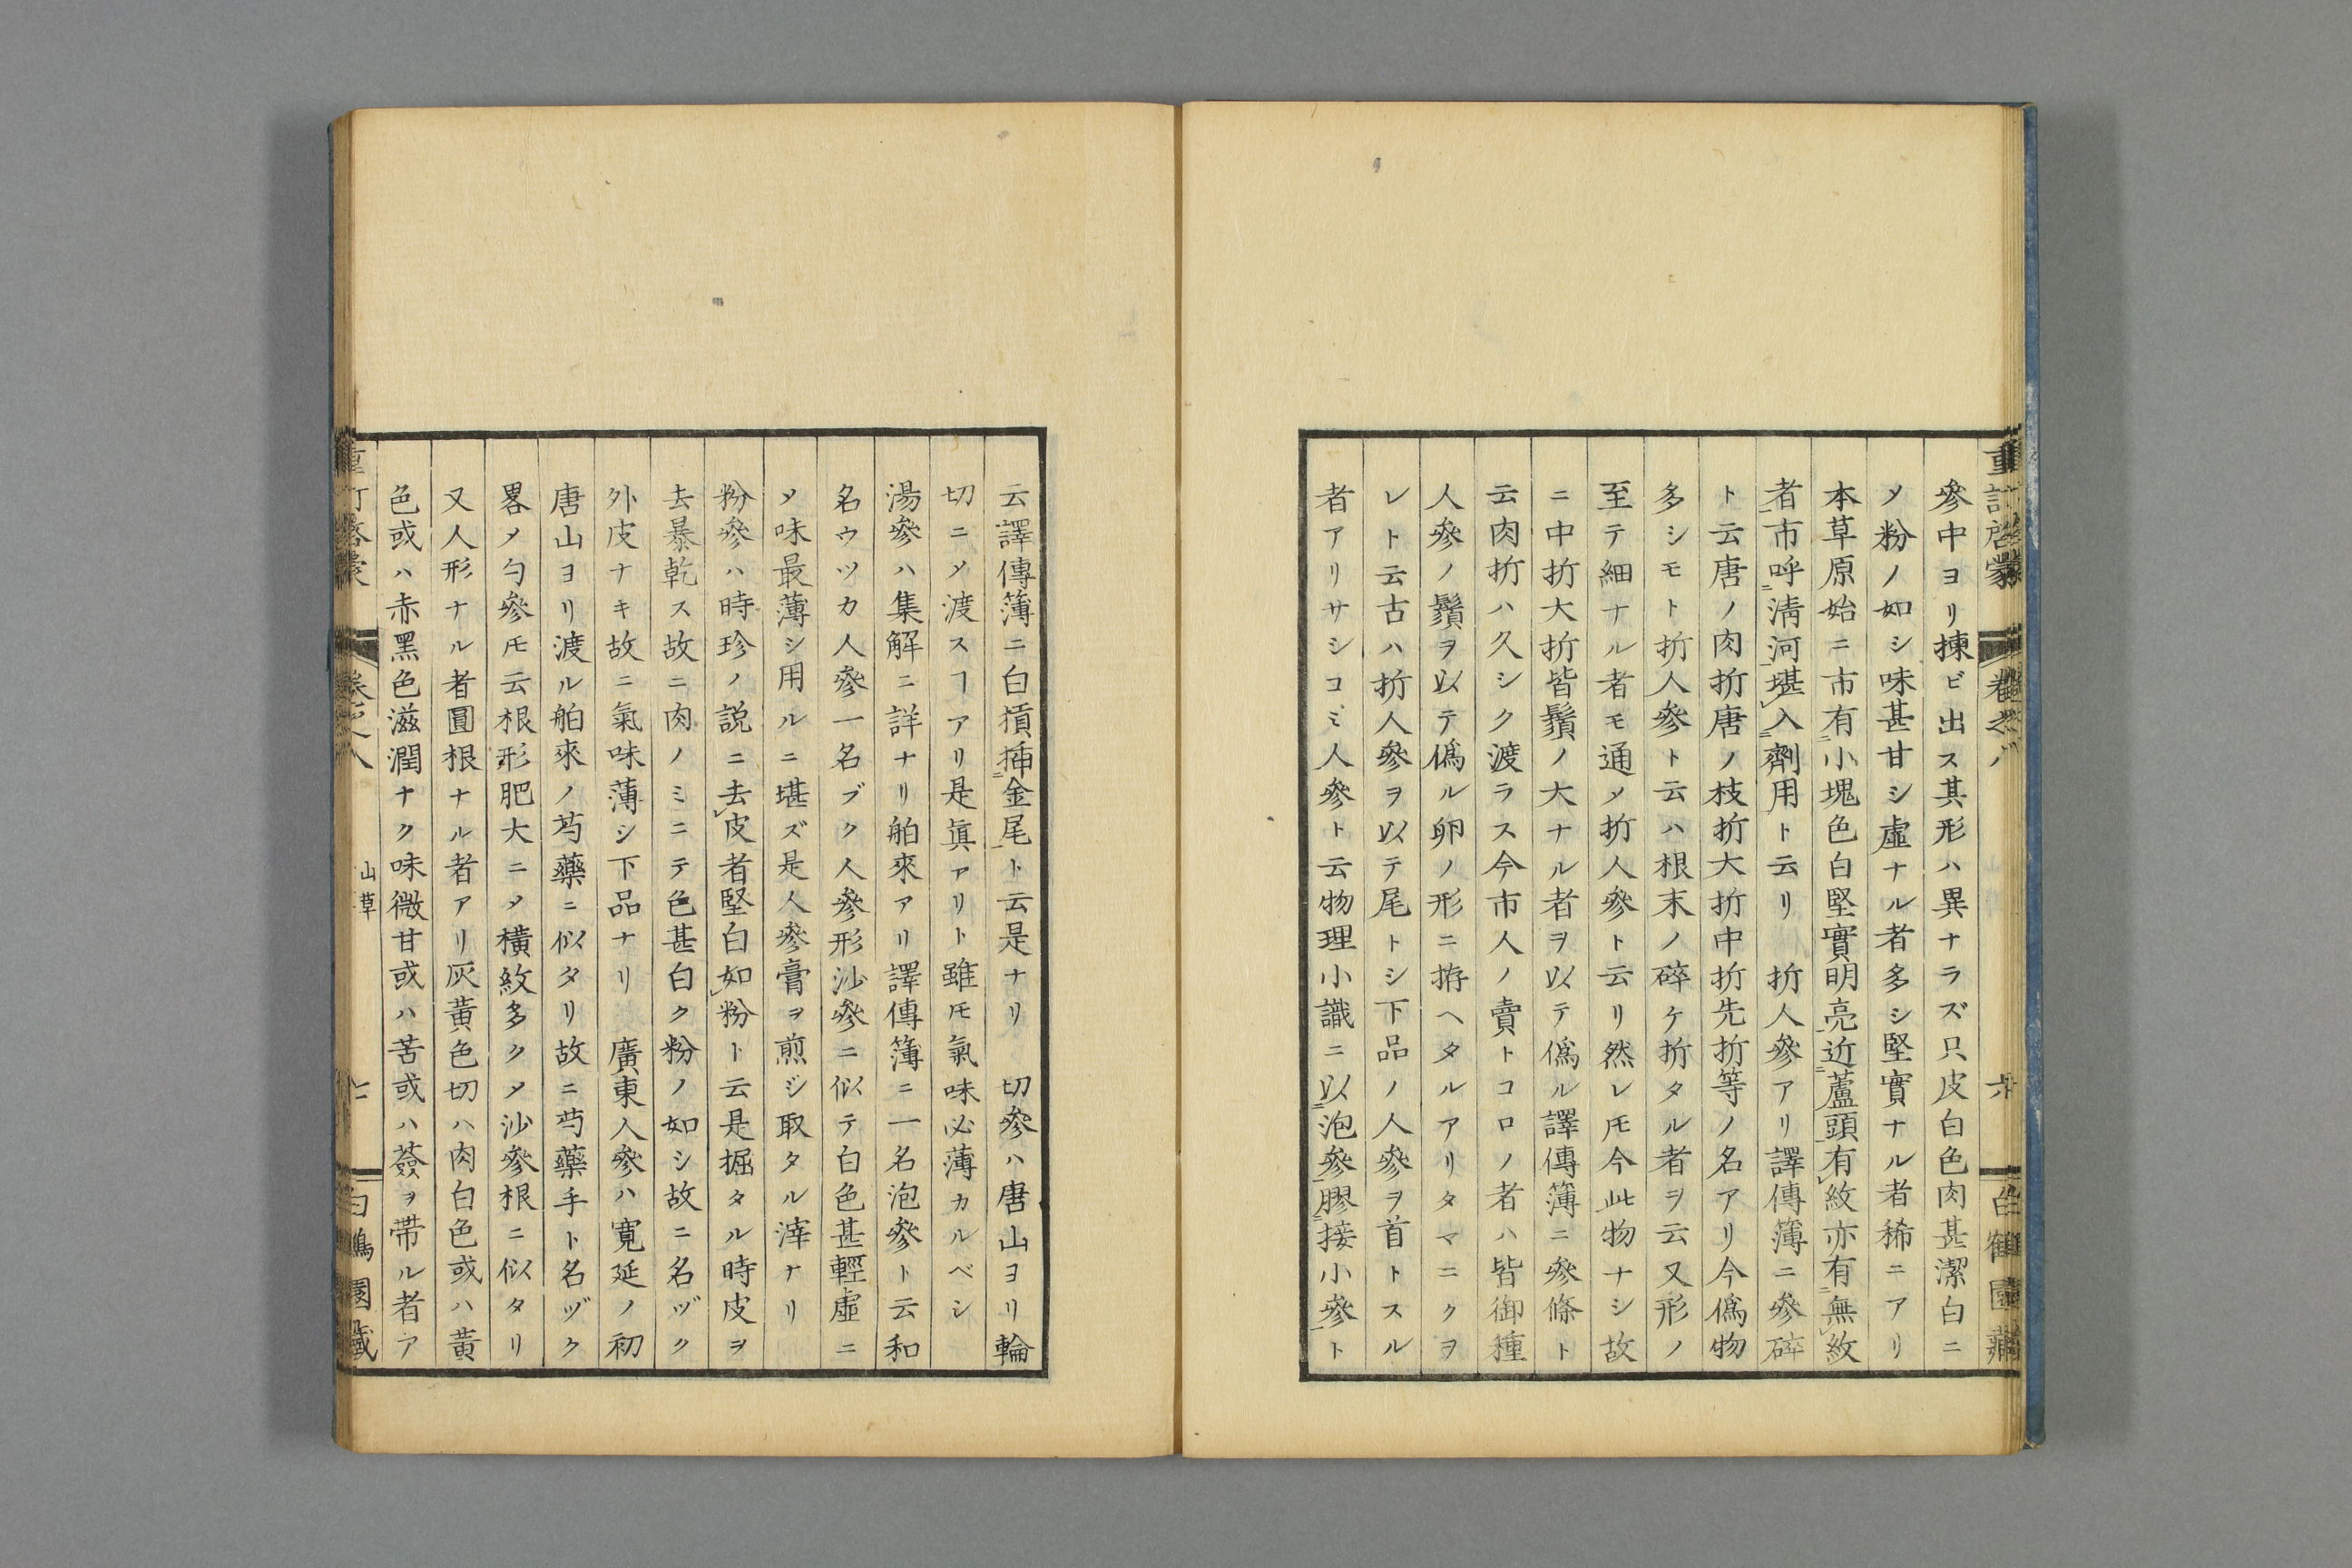 重訂啓蒙 卷之八 六 白鶴園藏
參中ヨリ揀ビ出ス其形ハ異ナラズ只皮白色肉甚潔白ニ
乄粉ノ如シ味甚甘シ虛ナル者多シ堅實ナル者稀ニアリ
本草原始ニ市有小塊色白堅實明亮近蘆頭有紋亦有無紋
者市呼淸河堪入劑用ト云リ 折人參アリ譯傳簿ニ參碎
ト云唐ノ肉折唐ノ枝折大折中折先折等ノ名アリ今僞物
多シモト折人參ト云ハ根末ノ碎ケ折タル者ヲ云又形ノ
至テ細ナル者モ通乄折人參ト云リ然レ𪜈今此物ナシ故
ニ中折大折皆鬚ノ大ナル者ヲ以テ僞ル譯傳簿ニ參條ト
云肉折ハ久シク渡ラス今市人ノ賣トコロノ者ハ皆御種
人參ノ鬚ヲ以テ僞ル卵ノ形ニ拵ヘタルアリタマニクヲ
レト云古ハ折人參ヲ以テ尾トシ下品ノ人參ヲ首トスル
者アリサシコミ人參ト云物理小識ニ以泡參膠接小參ト
云譯傳簿ニ白摃揷金尾ト云是ナリ 切參ハ唐山ヨリ輪
切ニ乄渡スヿアリ是眞アリト雖𪜈氣味必薄カルベシ
湯參ハ集解ニ詳ナリ舶來アリ譯傳簿ニ一名泡參ト云和
名ウツカ人參一名ブク人參形沙參ニ似テ白色甚輕虛ニ
乄味最薄シ用ルニ堪ズ是人參膏ヲ煎ジ取タル滓ナリ
粉參ハ時珍ノ説ニ去皮者堅白如粉ト云是掘タル時皮ヲ
去暴乾ス故ニ肉ノミニテ色甚白ク粉ノ如シ故ニ名ヅク
外皮ナキ故ニ氣味薄シ下品ナリ 廣東人參ハ寛延ノ初
唐山ヨリ渡ル舶來ノ芍藥ニ似タリ故ニ芍藥手ト名ヅク
畧乄勺參𪜈云根形肥大ニ乄橫紋多ク乄沙參根ニ似タリ
又人形ナル者圓根ナル者アリ灰黃色切ハ肉白色或ハ黃
色或ハ赤黑色滋潤ナク味微甘或ハ苦或ハ薟ヲ帶ル者ア
山草